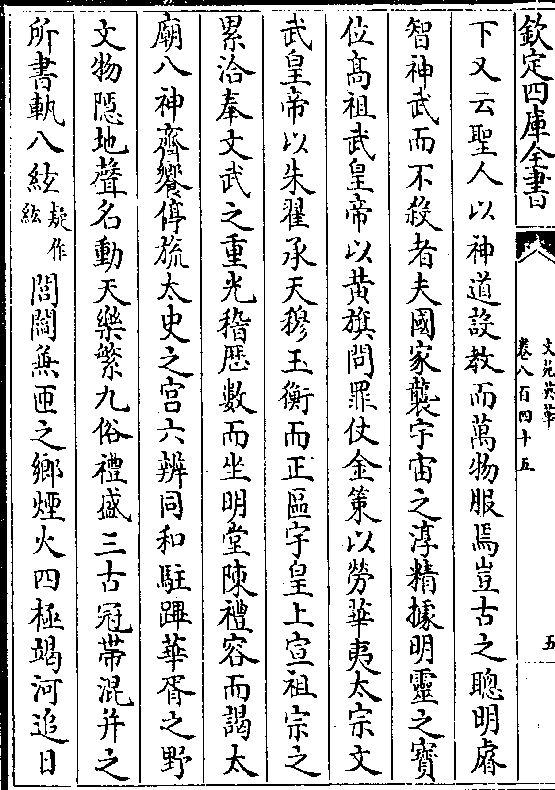 欽定四庫全書
文苑英華
卷八百四十五
五
下又云聖人以神道設教而萬物服焉豈古之聰明睿
智神武而不殺者夫國家襲宇宙之淳精據明靈之寶
位髙祖武皇帝以黄旗問罪仗金策以勞華夷太宗文
武皇帝以朱翟承天穆玉衡而正區宇皇上宣祖宗之
累洽奉文武之重光稽厯數而坐明堂陳禮容而謁太
廟八神齊饗停旒太史之宫六辨同和駐蹕華胥之野
文物隠地聲名動天樂繁九俗禮盛三古冠帶混并之
所書軌八絃疑作紘閭閻無匝之鄉煙火四極竭河追日